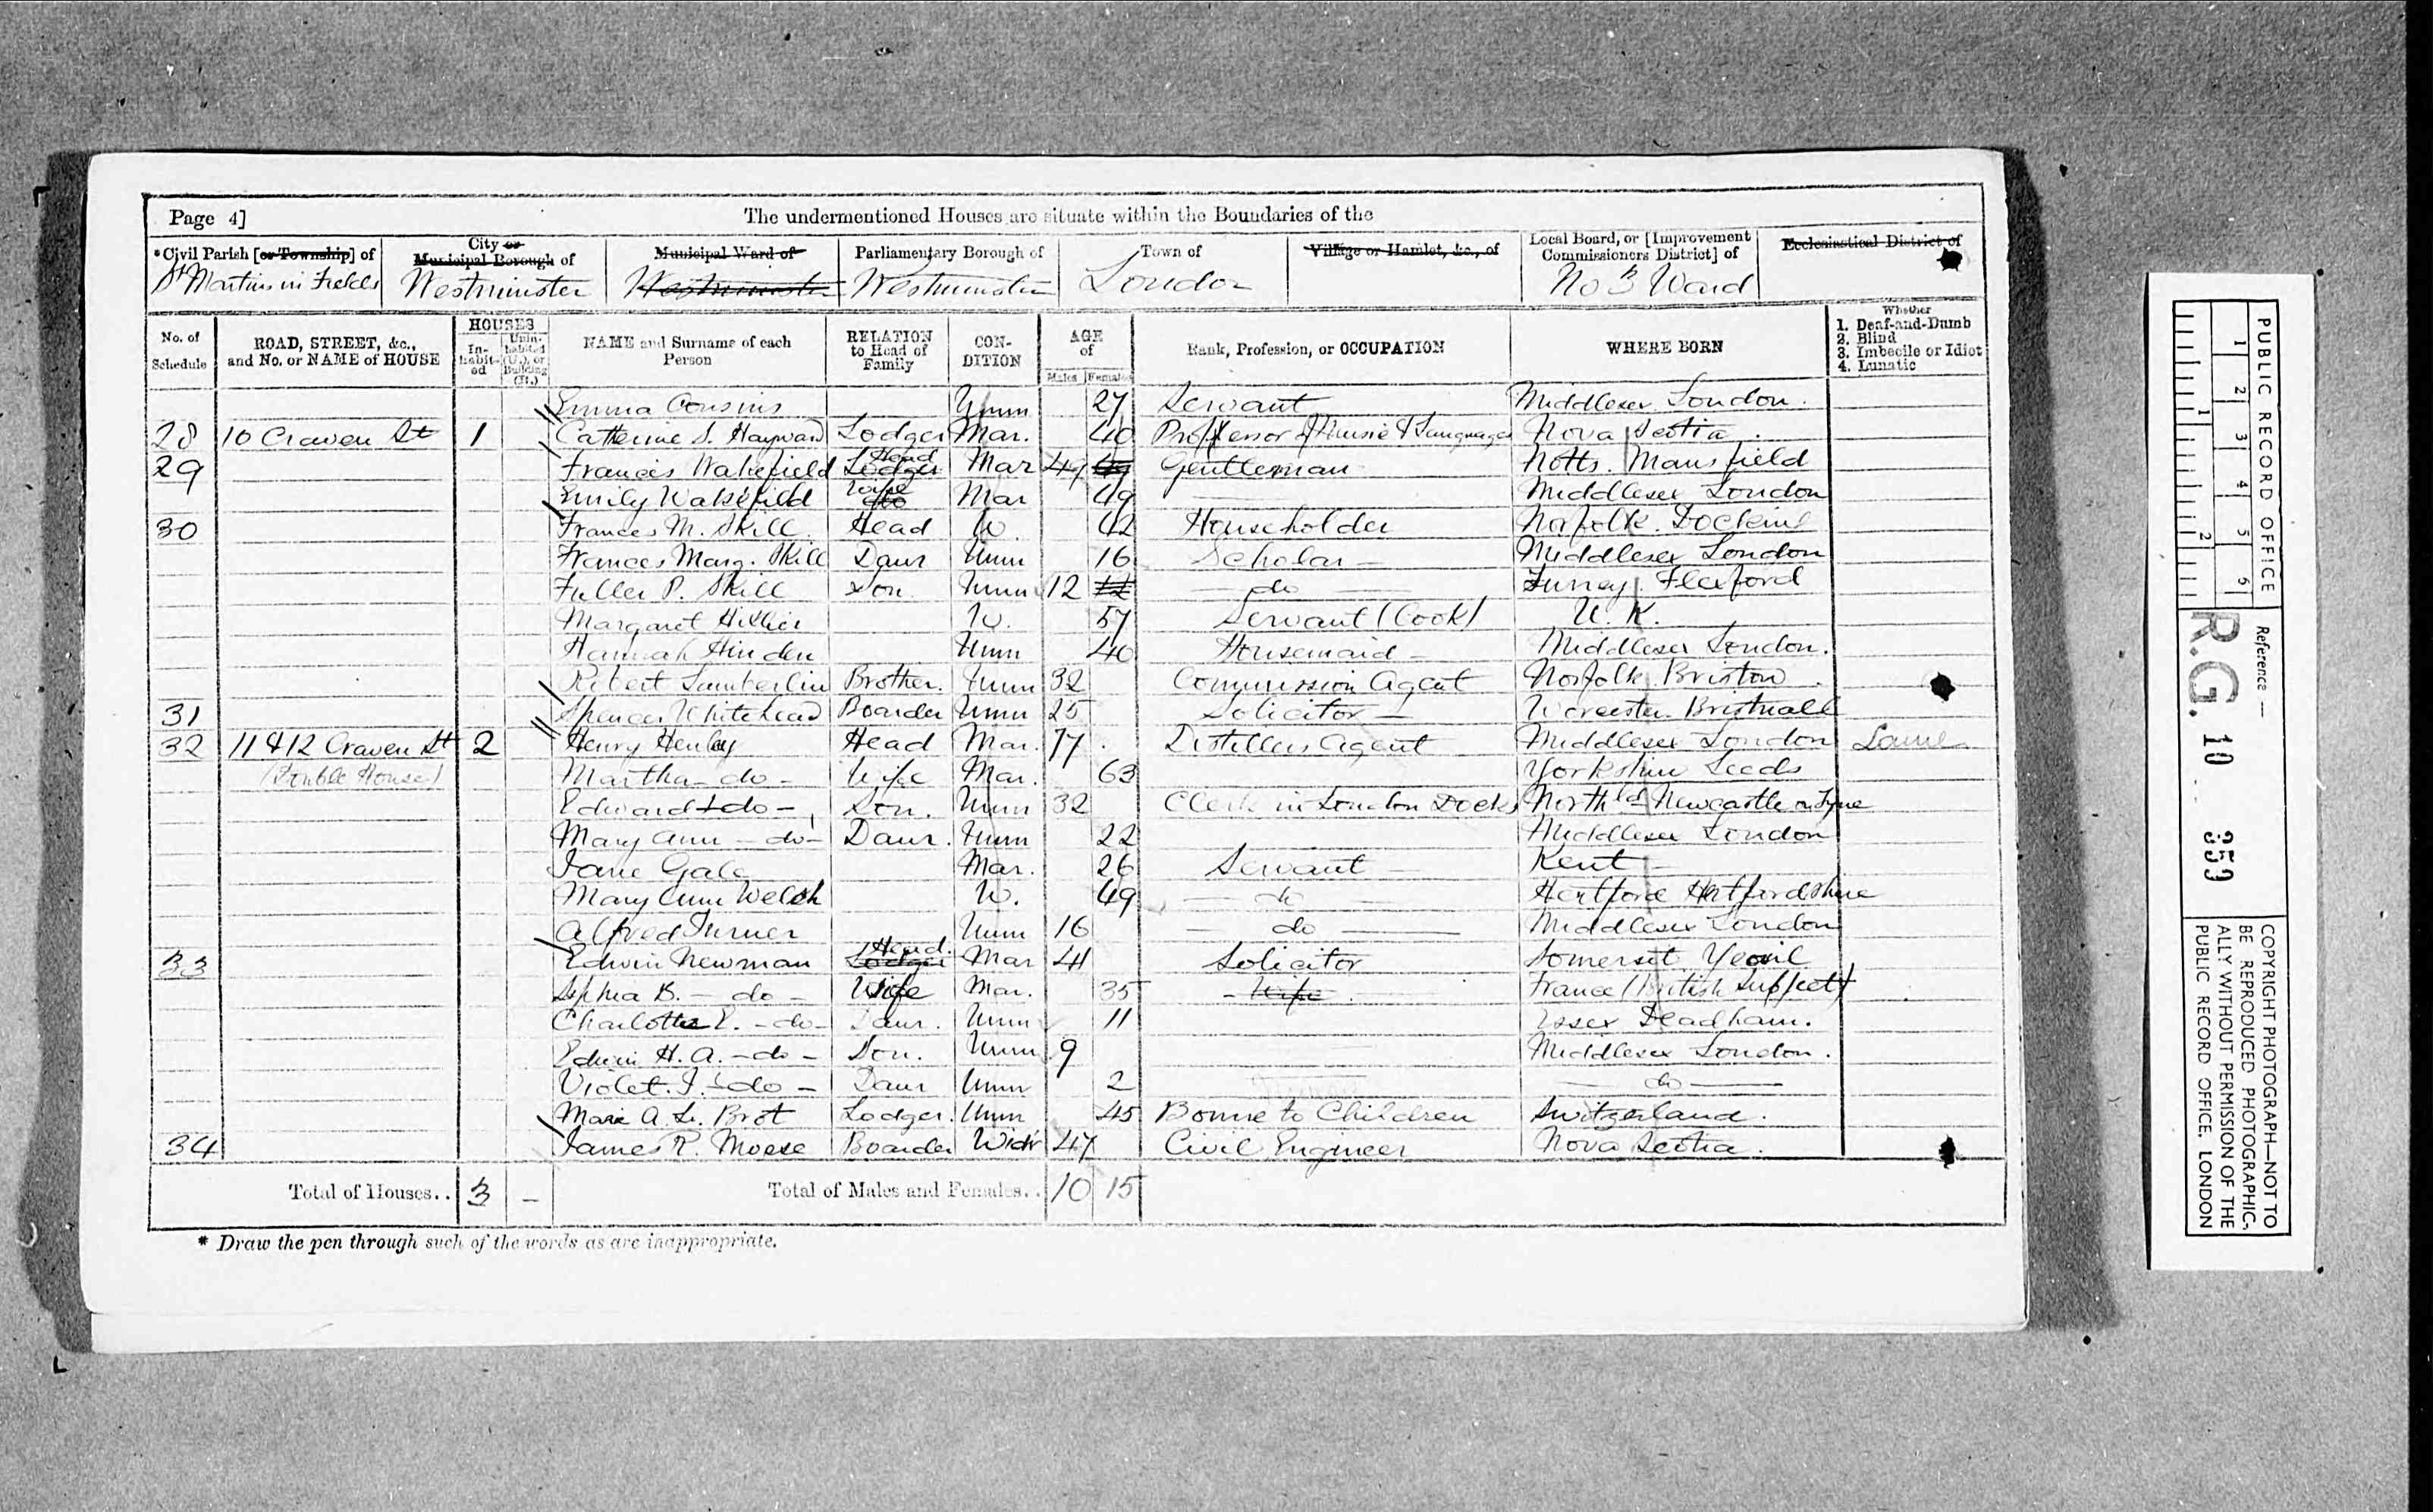 Page 4]
The undermentioned Houses are situate within the Boundaries of the
*Civil Parish [or Township] of
City or Municipal Borough of
Municipal Ward of
Parliamentary Borough of
Town of
Village or Hamlet, &c., of
Local Board, or [Improvement Commissioners District] of
Ecclesiastical District of
St Martins in Fields Westminster Westminster Westminster London No 3 Ward
No. of Schedule
ROAD, STREET, &c., and No. or NAME of HOUSE
HOUSES
In-habit-ed
Unin-habited (U.), or Building (B.)
NAME and Surname of each Person
RELATION to Head of Family
CON-DITION
AGE of
Males Females
Rank, Profession, or OCCUPATION
WHERE BORN
Whether
1. Deaf-and-Dumb
2. Blind
3. Imbecile or Idiot
4. Lunatic
Emma Cousins Unm 27 Servant Middlesex London.
28 10 Craven St 1 Catherine S. Hayward Lodger Mar. 40 Professor of Music & Languages Nova Scotia
29 Francis Wakefield Lodger Head Mar 49 49 Gentleman Notts. Mansfield
Emily Wakefield do Wife Mar 49 Middlesex London
30 Frances M. Skill Head W. 42 Householder Norfolk. Docking
Frances Marg. Skill Daur Unm 16 Scholar Middlesex London
Fuller P. Skill Son. Unm 12 12 do Surrey Flexford
Margaret Hillier W. 57 Servant (Cook) U. K.
Hannah Hinden Unm 40 Housemaid Middlesex London.
Robert Lamberlin Brother. Unm 32 Commission Agent Norfolk Briston
31 Spencer Whitehead Boarder Unm 25 Solicitor Worcester.
32 11 & 12 Craven St 2 Henry Henley Head Mar. 77 Distillers Agent Middlesex London Lame
(Double House) Martha do Wife Mar. 63 Yorkshire Leeds
Edward do Son. Unm 32 Clerk in London Docks Northld Newcastle on Tyne
Mary Ann do Daur. Unm 22 Middlesex London
Jane Gale Mar. 26 Servant Kent
Mary Ann Welch W. 49 do Hertford Hertfordshire
Alfred Turner Unm 16 do Middlesex London
33 Edwin Newman Lodger Head Mar 41 Solicitor Somerset Yeovil
Sophia B. do Wife Mar. 35 Wife France (British Subject)
Charlotte E. do Daur. Unm 11 Essex Deadham.
Edwin H. A. do Son. Unm 9 Middlesex London.
Violet. I. do Daur Unm 2 do
Marie A. L. Brot Lodger. Unm 45 Bonne to Children Switzerland.
34 James R. Mosse Boarder Widr 47 Civil Engineer Nova Scotia.
Total of Houses.. 3 – Total of Males and Females.. 10 15
* Draw the pen through such of the words as are inappropriate.
PUBLIC RECORD OFFICE
1 2 3 4 5 6
1 2
Reference —
R.G. 10 359
COPYRIGHT PHOTOGRAPH—NOT TO BE REPRODUCED PHOTOGRAPHIC-ALLY WITHOUT PERMISSION OF THE PUBLIC RECORD OFFICE, LONDON